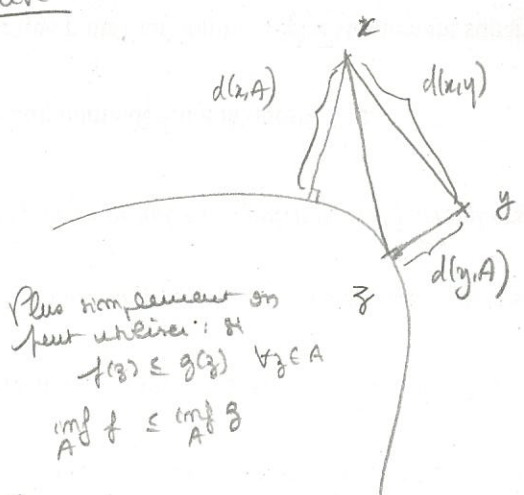 x
d(x,A)
d(x,y)
y
d(y,A)
z
Plus simplement on
peut utiliser : si
f(z) ≤ g(z) ∀z ∈ A
inf f ≤ inf g
A A